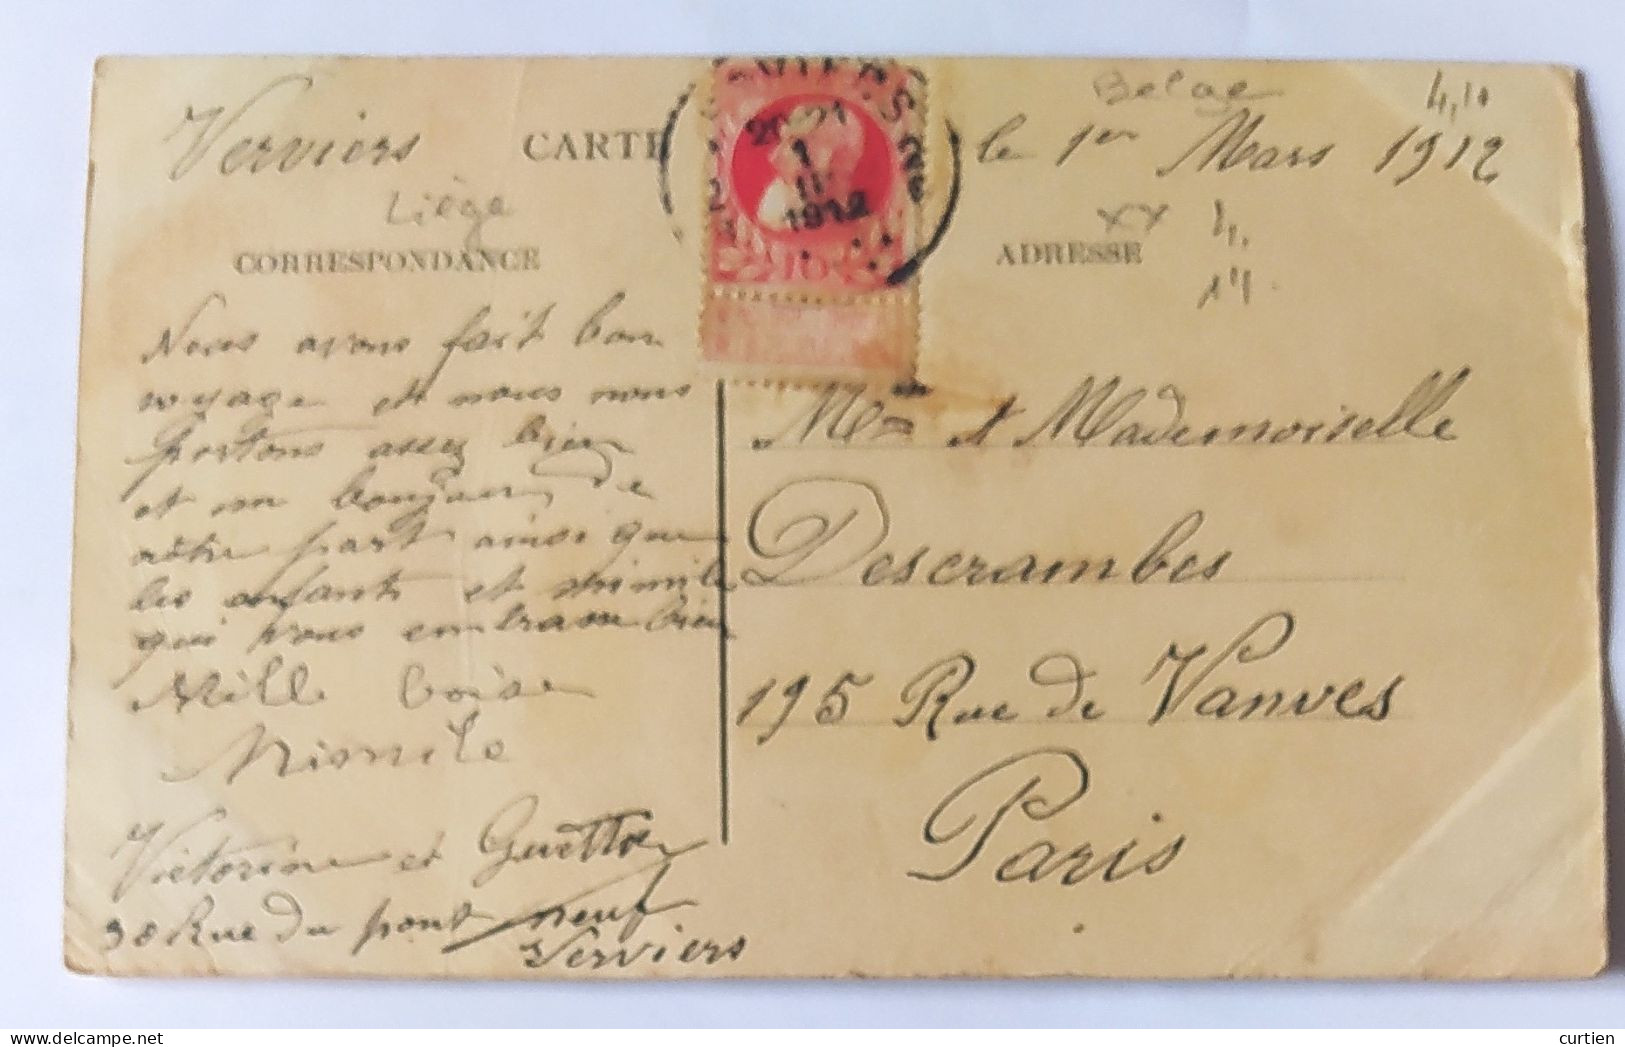 Verviers CARTE le 1er Mars 1912
Liège
CORRESPONDANCE
ADRESSE
XX
4,10
Nous avons fait bon
voyage et nous nous
portons assez bien
et un bonjour de
nôtre part ainsi que
les enfants et Mimile
qui vous embrasse bien
Mille boise
Mimile
Victorine et
30 Rue du pont neuf
Verviers
20-21
1
1912
10
Mme et Mademoiselle
Descrambes
195 Rue de Vanves
Paris
delcampe.net
curtien